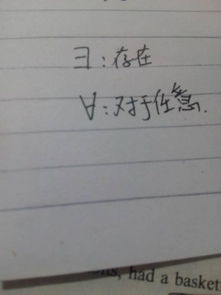 ∃:存在
∀:对于任意.
had a basket